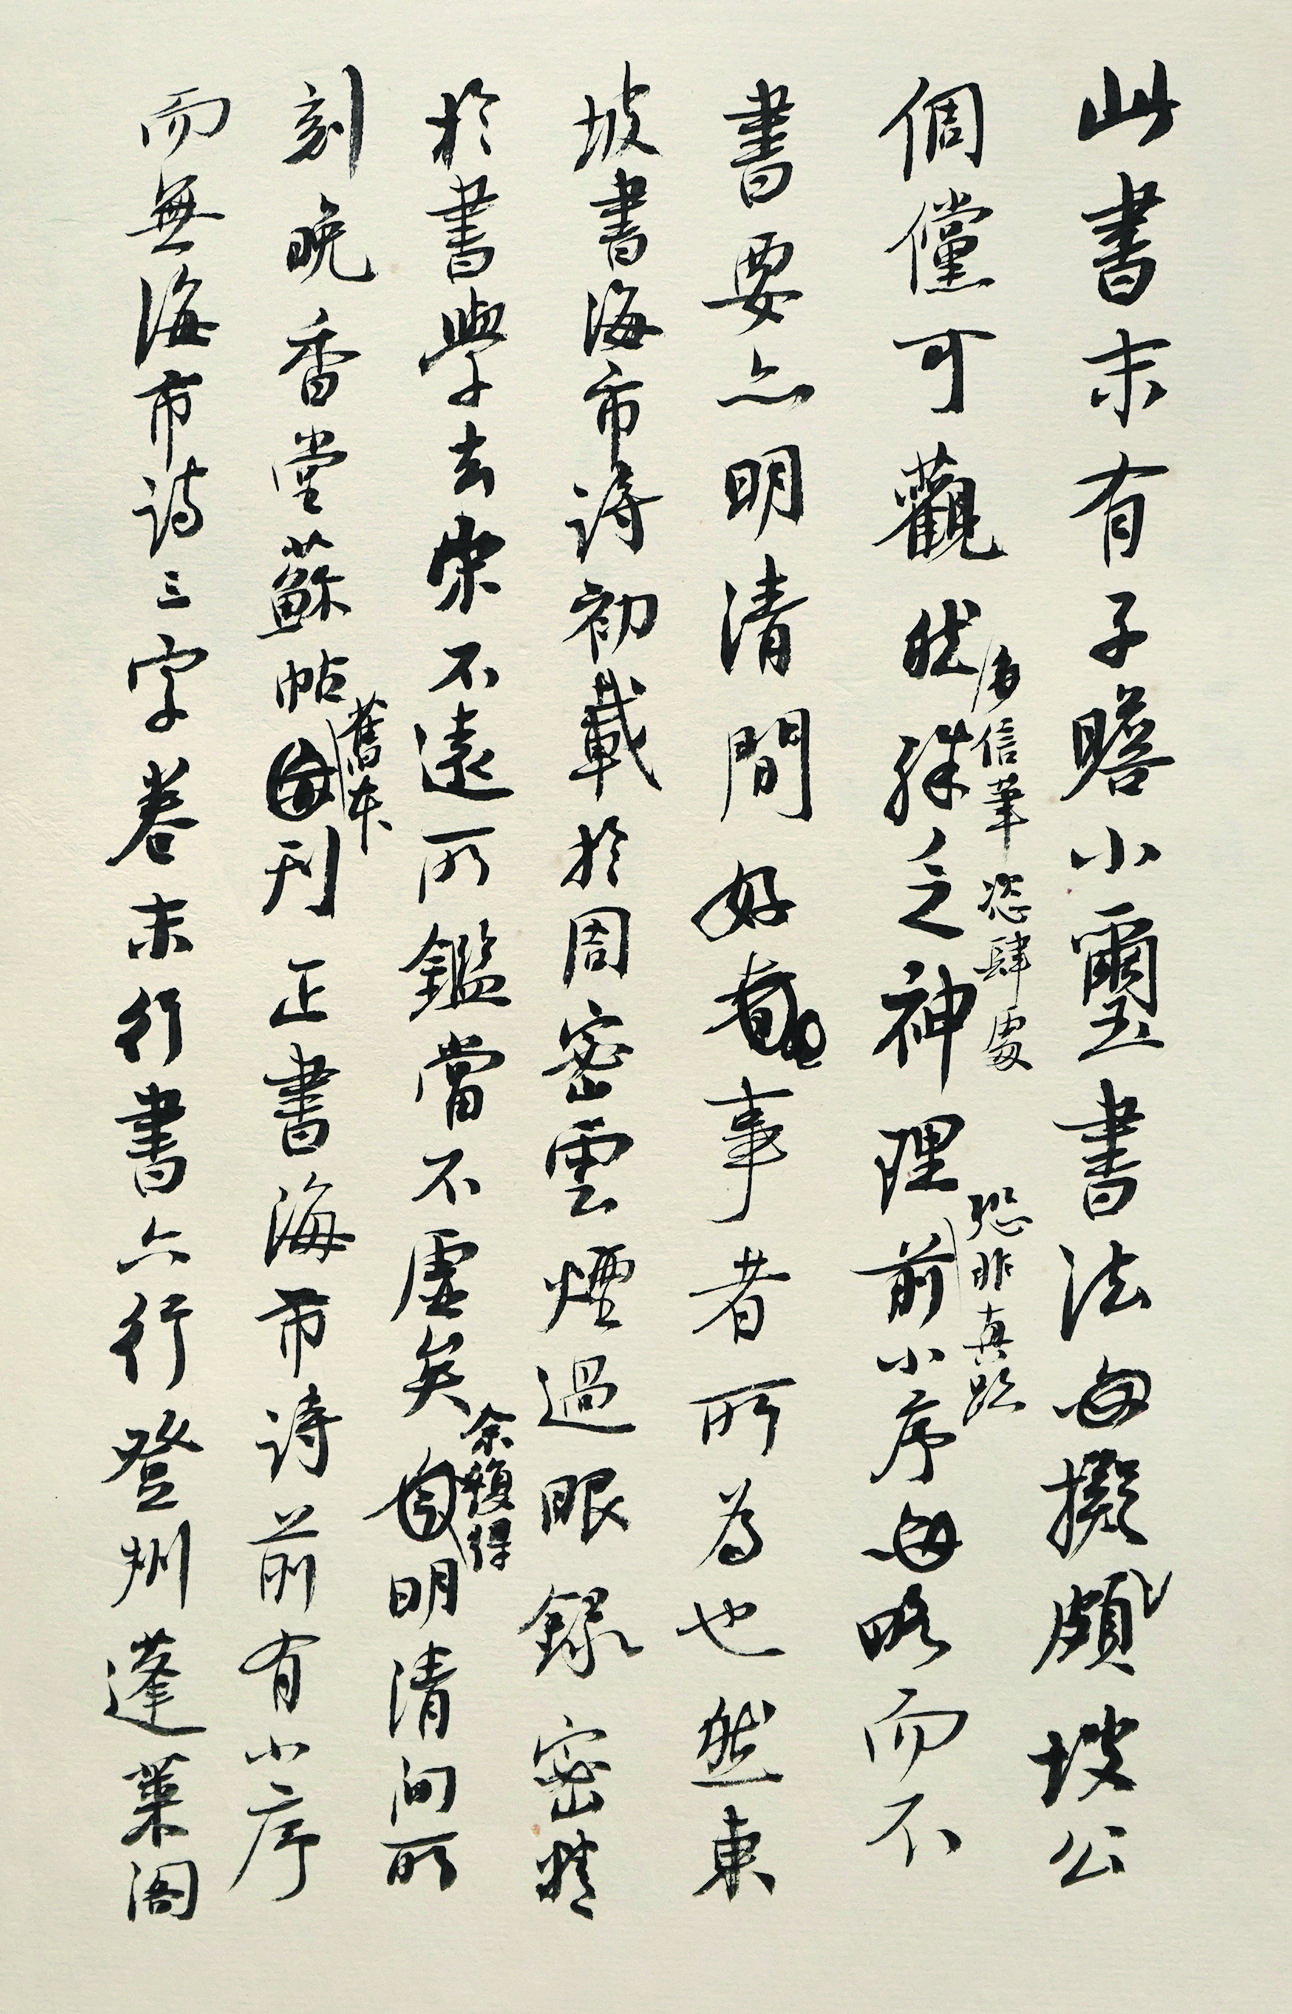 此書末有子瞻小璽書法每擬頗坡公
倜儻可觀然殊乏神理前小序每略而不
信筆恣肆處
恐非真跡
書要亦明清間好事者所為也然東
坡書海市詩初載於周密雲煙過眼錄密精
於書學去宋不遠所鑑當不虛矣明清間所
余復得
刻晚香堂蘇帖刊正書海市詩前有小序
舊本
而無海市詩三字卷末行書六行登州蓬萊閣